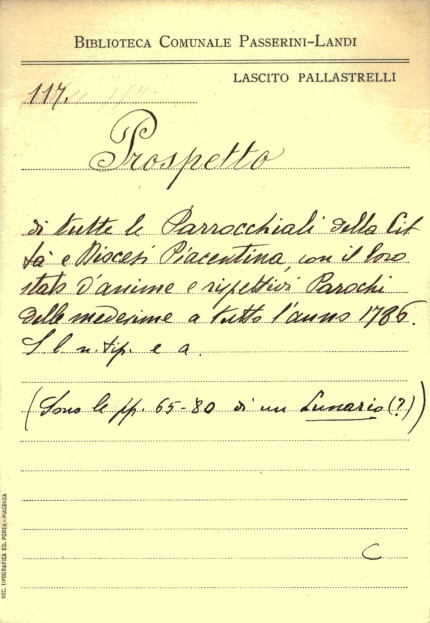 BIBLIOTECA COMUNALE PASSERINI-LANDI
LASCITO PALLASTRELLI
117.
Prospetto
di tutte le Parrocchiali della Cit
tà e Diocesi Piacentina, con il loro
stato d'anime e rispettivi Parochi
delle medesime a tutto l'anno 1786.
S l n. tip. e a.
(Sono le pp. 65-80 di un Lunario (?))
C
SOC. TIPOGRAFICA ED. PORTA - PIACENZA